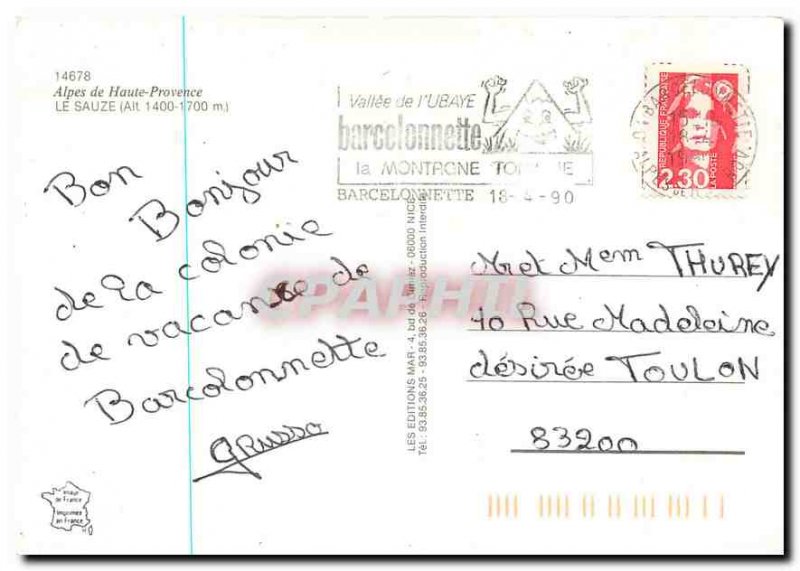 14678
Alpes de Haute-Provence
LE SAUZE (Alt 1400-1700 m.)
Vallée de l'UBAYE
barcelonnette
la MONTAGNE
BARCELONNETTE 18-4-90
REPUBLIQUE FRANÇAISE
2.30
LA POSTE
Bon
Bonjour
de la colonie
de vacance de
Barcolonnette
grusso
LES EDITIONS MAR - 4, bd de - 06000 NICE
Tél.: 93.85.36.25 - 93.85.36.26 - Reproduction Interdite
CPAPHIL
Mret Mem THUREY
10 Rue Madeleine
désirée TOULON
83200
Image
de France
Imprimée
en France